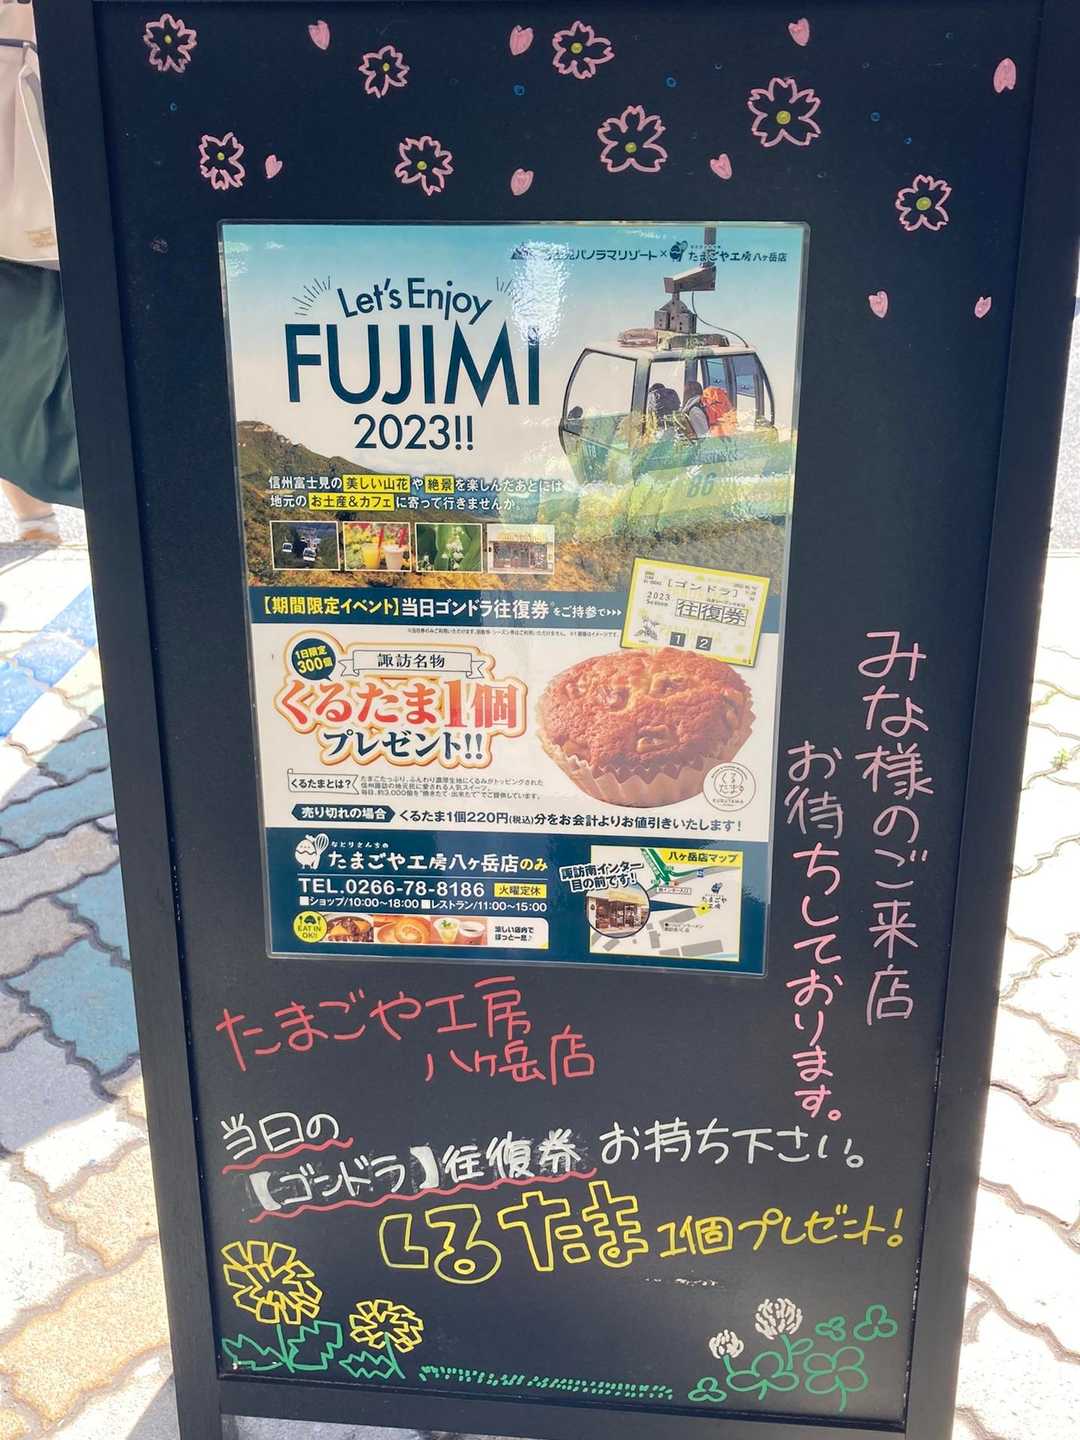 パノラマリゾート×たまごや工房八ヶ岳店
Let's Enjoy
FUJIMI
2023!!
信州富士見の美しい山花や絶景を楽しんだあとには
地元のお土産&カフェに寄って行きませんか。
86
【期間限定イベント】当日ゴンドラ往復券をご持参で>>>
[ゴンドラ]
2023
往復券
1 2
1日限定
300個
諏訪名物
くるたま1個
プレゼント!!
くるたまとは?
たまごたっぷり、ふんわり濃厚生地にくるみがトッピングされた
信州諏訪の地元民に愛される人気スイーツ。
毎日、約3,000個を"焼きたて・出来たて"でご提供しています。
くるたまる
KURUTAMA
売り切れの場合 くるたま1個220円(税込)分をお会計よりお値引きいたします!
なとりさんちの
たまごや工房八ヶ岳店のみ
TEL.0266-78-8186 火曜定休
■ショップ/10:00〜18:00 ■レストラン/11:00〜15:00
EAT IN
OK!!
涼しい店内で
ほっと一息♪
諏訪南インター
目の前です!
八ヶ岳店マップ
たまごや
工房
みな様のご来店
お待ちしております。
たまごや工房
八ヶ岳店
当日の
【ゴンドラ】往復券 お持ち下さい。
くるたま1個プレゼント!